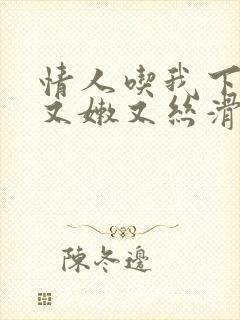 情人喫我下
又嫩又絲滑
陳冬邊